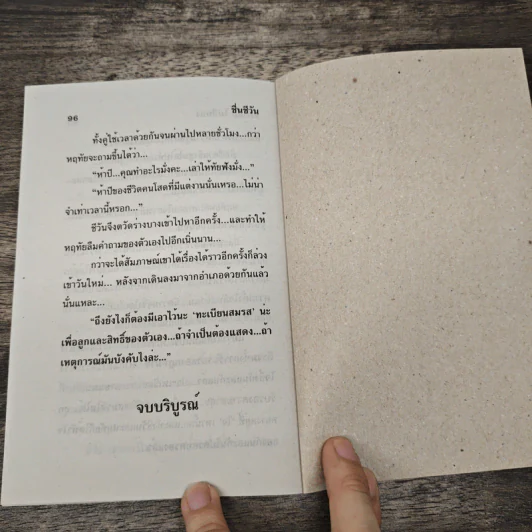 96
ชื่นชีวัน
ทั้งคู่ใช้เวลาด้วยกันจนผ่านไปหลายชั่วโมง...กว่า
หฤทัยจะถามขึ้นได้ว่า...
“ห้าปี...คุณทำอะไรมั่งคะ...เล่าให้ทัยฟังมั่ง...”
“ห้าปีของชีวิตคนโสดที่มีแต่งานนั่นเหรอ...ไม่น่า
จำเท่าเวลานี้หรอก...”
ชีวันจึงตวัดร่างบางเข้าไปหาอีกครั้ง...และทำให้
หฤทัยลืมคำถามของตัวเองไปอีกเนิ่นนาน...
กว่าจะได้สัมภาษณ์เขาได้เรื่องได้ราวอีกครั้งก็ล่วง
เข้าวันใหม่... หลังจากเดินลงมาจากอำเภอด้วยกันแล้ว
นั่นแหละ...
“ถึงยังไงก็ต้องมีเอาไว้นะ ‘ทะเบียนสมรส’ น่ะ
เพื่อลูกและสิทธิ์ของตัวเอง...ถ้าจำเป็นต้องแสดง...ถ้า
เหตุการณ์มันบังคับไงล่ะ...”
จบบริบูรณ์